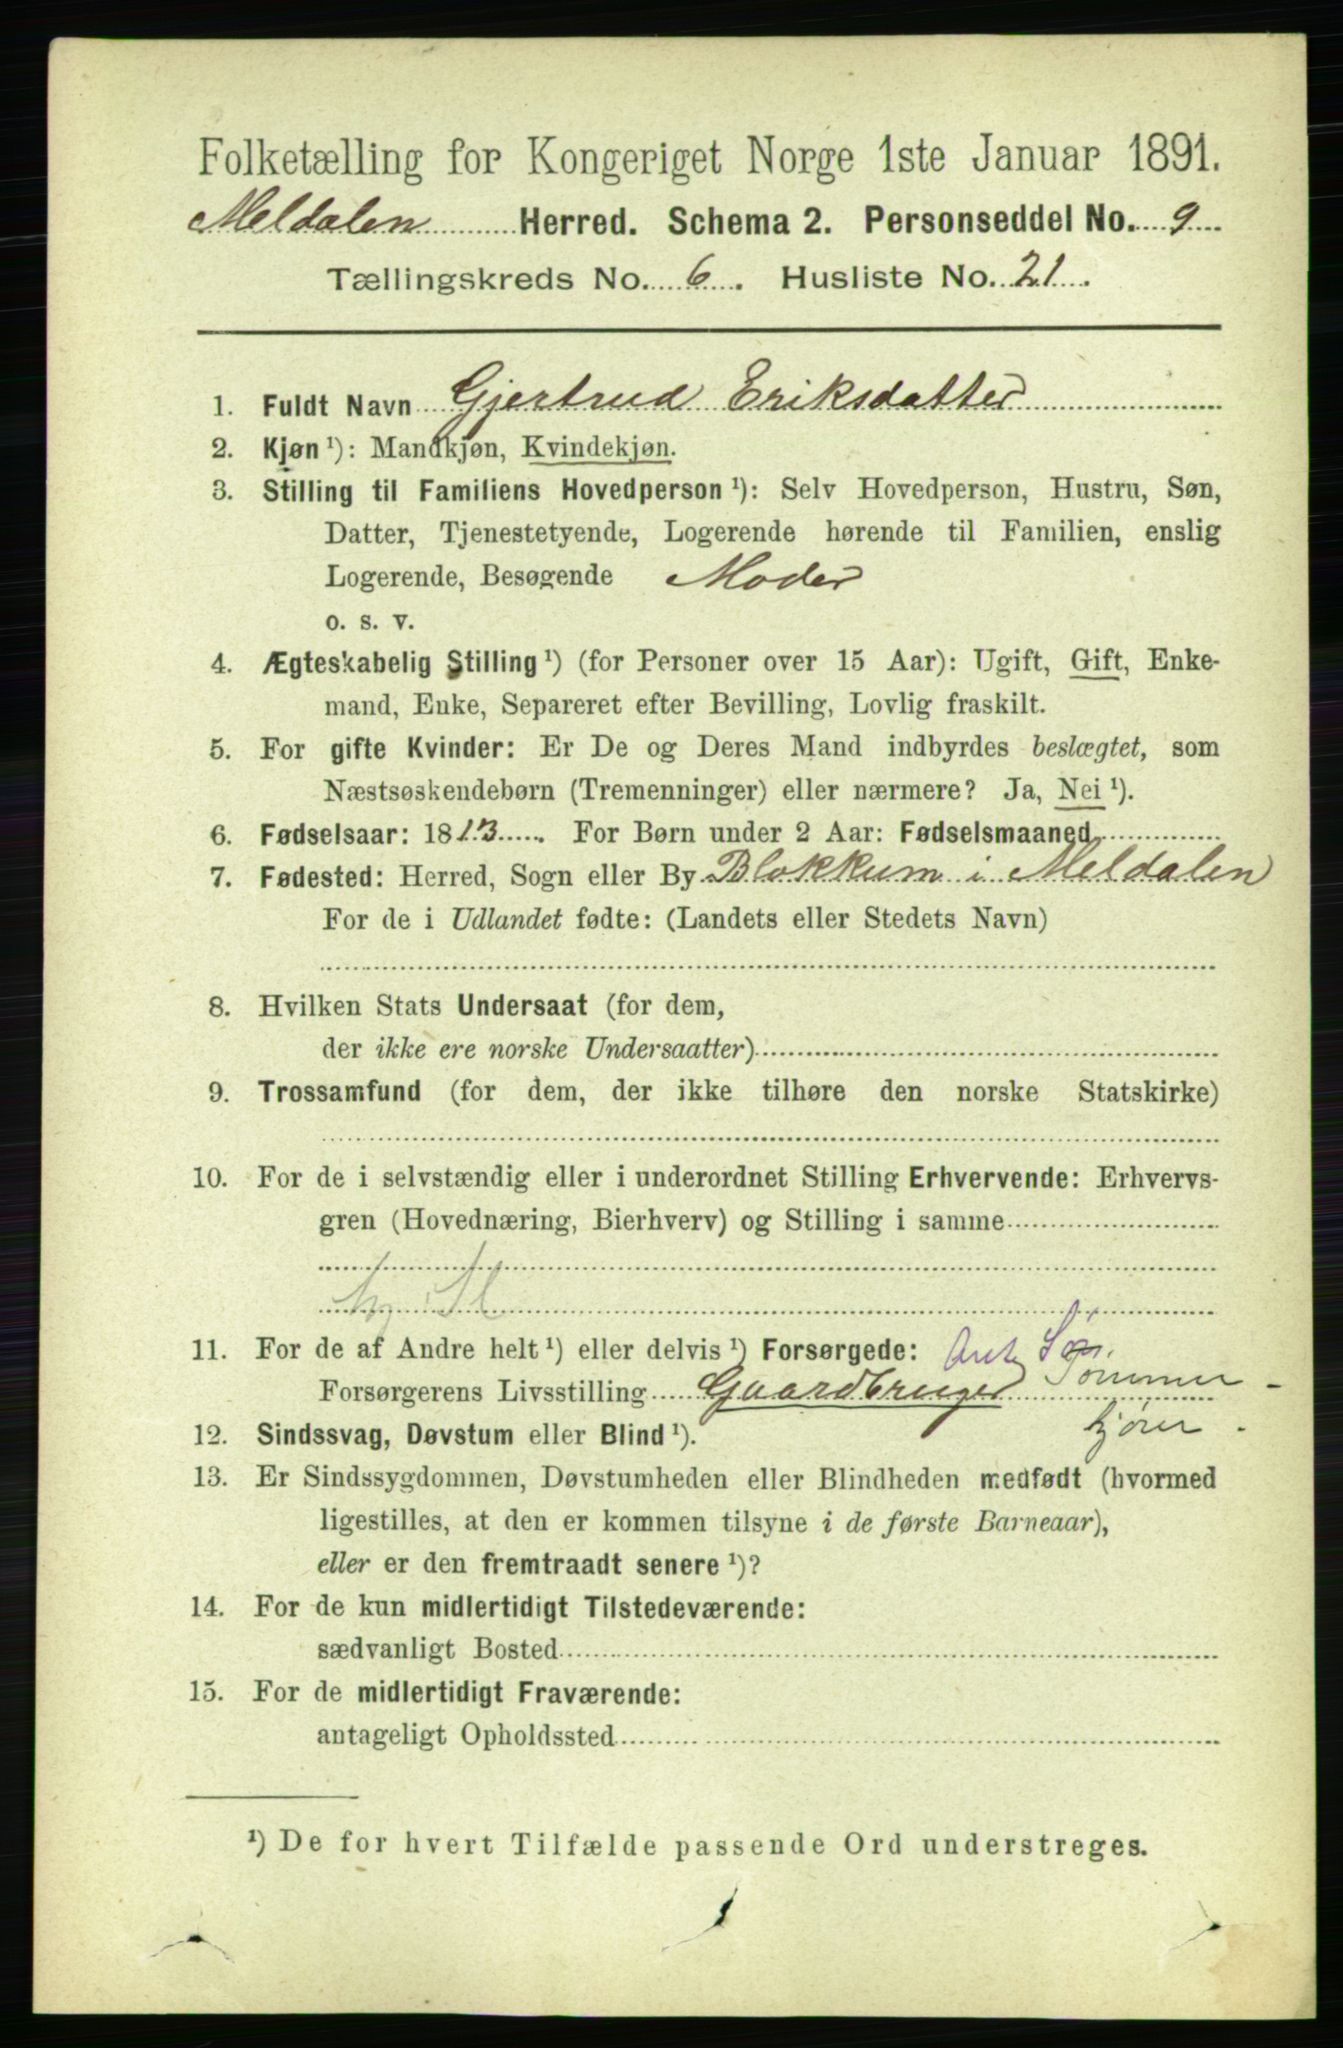 Folketælling for Kongeriget Norge 1ste Januar 1891.
Meldalen Herred. Schema 2. Personseddel No. 9
Tællingskreds No. 6. Husliste No. 21.
1. Fuldt Navn Gjertrud Eriksdatter
2. Kjøn ¹): Mandkjøn, Kvindekjøn.
3. Stilling til Familiens Hovedperson ¹): Selv Hovedperson, Hustru, Søn,
Datter, Tjenestetyende, Logerende hørende til Familien, enslig
Logerende, Besøgende Moder
o. s. v.
4. Ægteskabelig Stilling ¹) (for Personer over 15 Aar): Ugift, Gift, Enke-
mand, Enke, Separeret efter Bevilling, Lovlig fraskilt.
5. For gifte Kvinder: Er De og Deres Mand indbyrdes beslægtet, som
Næstsøskendebørn (Tremenninger) eller nærmere? Ja, Nei ¹).
6. Fødselsaar: 1813. For Børn under 2 Aar: Fødselsmaaned
7. Fødested: Herred, Sogn eller By Blokkum i Meldalen
For de i Udlandet fødte: (Landets eller Stedets Navn)
8. Hvilken Stats Undersaat (for dem,
der ikke ere norske Undersaatter)
9. Trossamfund (for dem, der ikke tilhøre den norske Statskirke)
10. For de i selvstændig eller i underordnet Stilling Erhvervende: Erhvervs-
gren (Hovednæring, Bierhverv) og Stilling i samme
11. For de af Andre helt ¹) eller delvis ¹) Forsørgede: Søn.
Forsørgerens Livsstilling Gaardbruger Tømmer-
kjører.
12. Sindssvag, Døvstum eller Blind ¹).
13. Er Sindssygdommen, Døvstumheden eller Blindheden medfødt (hvormed
ligestilles, at den er kommen tilsyne i de første Barneaar),
eller er den fremtraadt senere ¹)?
14. For de kun midlertidigt Tilstedeværende:
sædvanligt Bosted
15. For de midlertidigt Fraværende:
antageligt Opholdssted
¹) De for hvert Tilfælde passende Ord understreges.